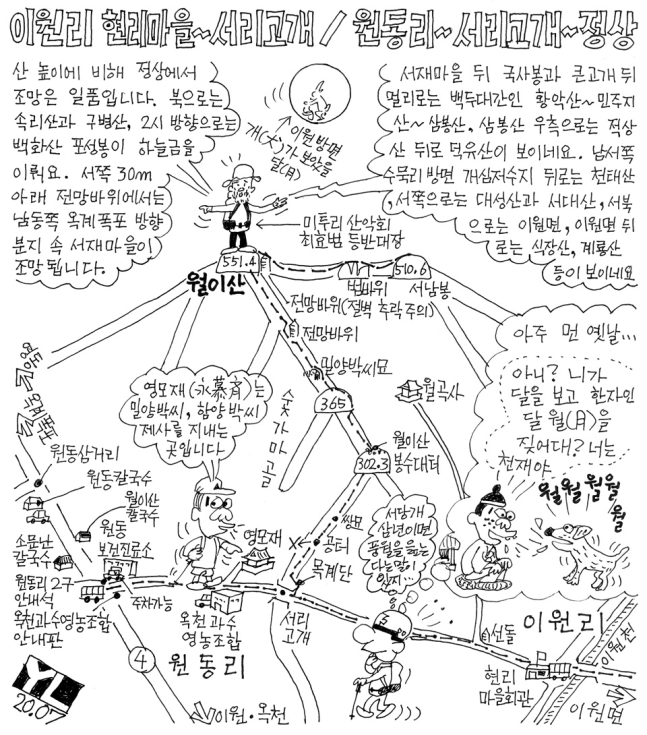 이원리 현리마을~서리고개 / 원동리~서리고개~정상
산 높이에 비해 정상에서
조망은 일품입니다. 북으로는
속리산과 구병산, 2시 방향으로는
백화산 포성봉이 하늘금을
이뤄요. 서쪽 30m
아래 전망바위에서는
남동쪽 옥계폭포 방향
분지 속 서재마을이
조망됩니다.
이원 방면
개(犬)가 보았을
달(月)
서재마을 뒤 국사봉과 큰고개 뒤
멀리로는 백두대간인 황악산~민주지
산~삼봉산, 삼봉산 우측으로는 적상
산 뒤로 덕유산이 보이네요. 남서쪽
수묵리 방면 개심저수지 뒤로는 천태산
, 서쪽으로는 대성산과 서대산, 서북
으로는 이원면, 이원면 뒤
로는 식장산, 계룡산
등이 보이네요
미투리 산악회
최효범 등반대장
551.4
월이산
범바위
510.6
서남봉
전망바위(절벽 추락 주의)
전망바위
밀양박씨묘
365
월곡사
숯가마골
월이산
봉수대터
302.3
쌍묘
공터
목계단
영모재(永慕齊)는
밀양박씨, 함양박씨
제사를 지내는
곳입니다
아주 먼 옛날...
아니? 니가
달을 보고 한자인
달 월(月)을
짖어대? 너는
천재야
월월월월
월
서당개
삼년이면
풍월을 읊는
다는 말이
있지...
영동
옥계폭포
원동삼거리
원동칼국수
월이산
칼국수
소문난
칼국수
원동
보건진료소
원동리 2구
안내석
옥천과수영농조합
안내판
주차가능
옥천과수
영농조합
영모재
서리
고개
선돌
이원리
현리
마을회관
이원천
이원면
4
원동리
이원·옥천
YL
2007